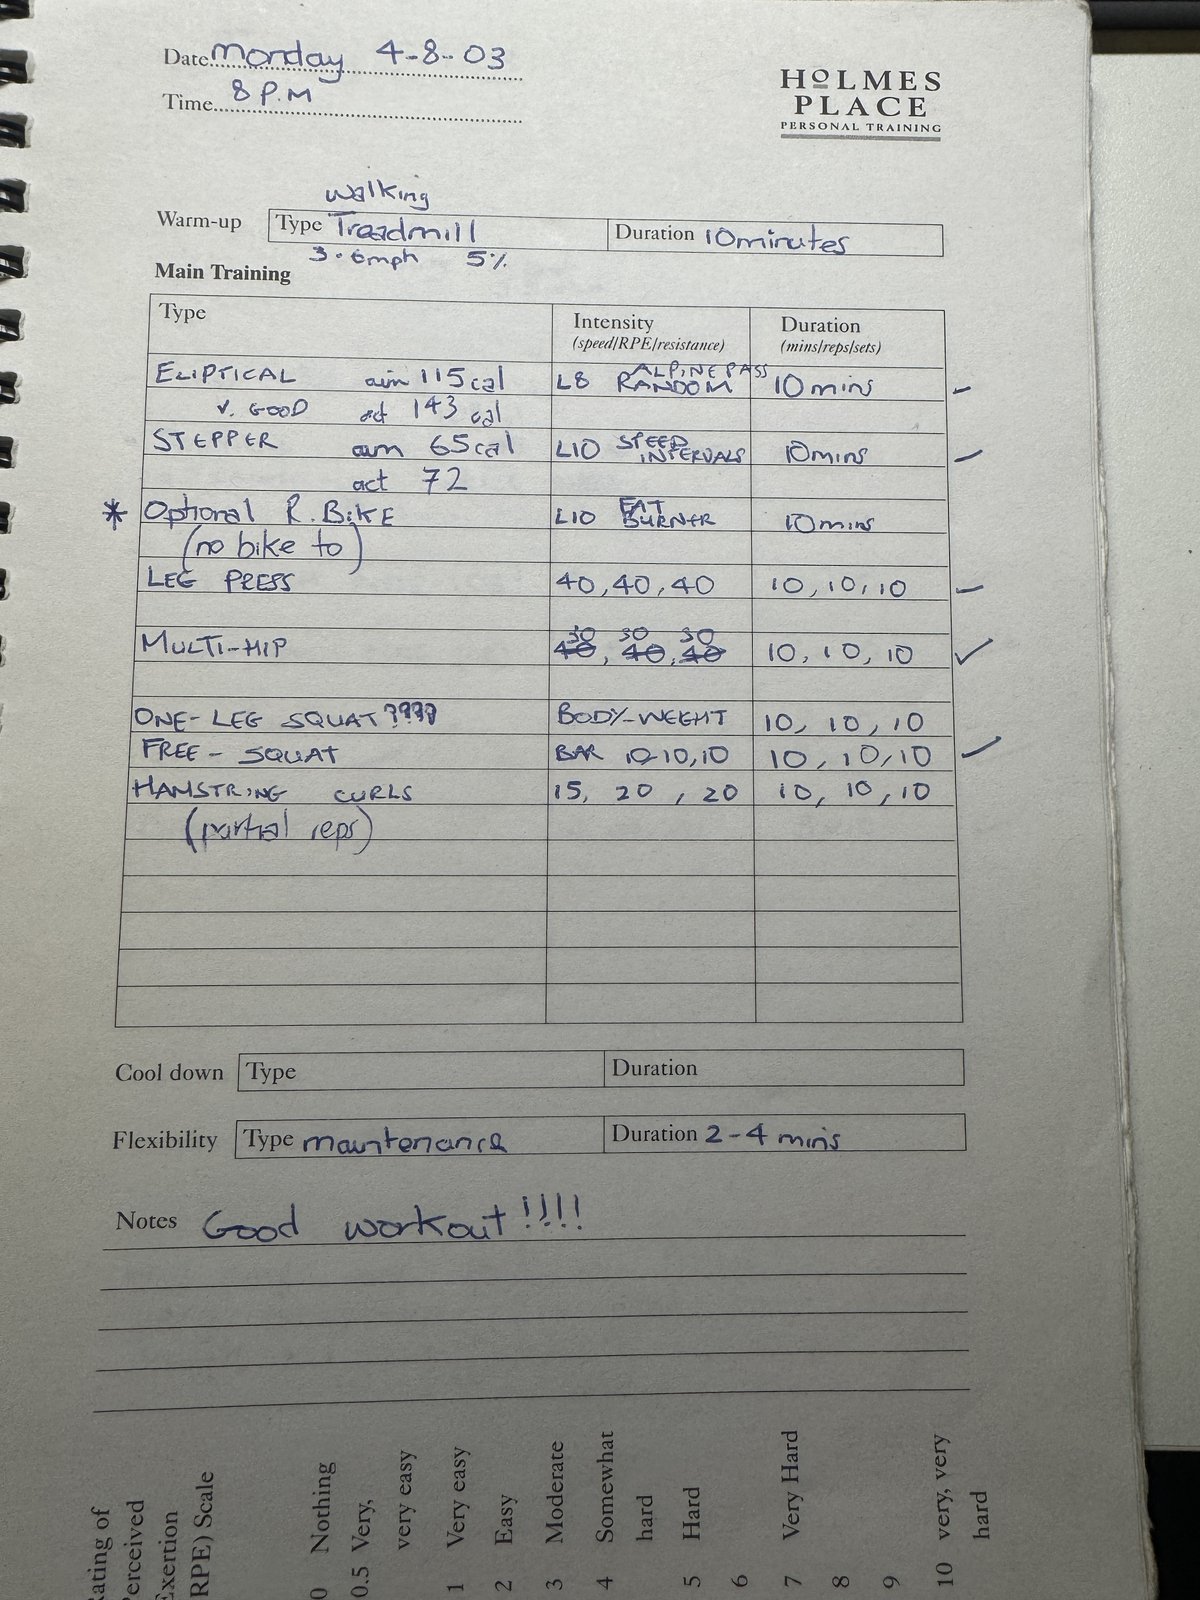 Date Monday 4-8-03
Time 8 P.M
HOLMES
PLACE
PERSONAL TRAINING
walking
Warm-up Type Treadmill Duration 10minutes
3.6mph 5%
Main Training
Type Intensity (speed/RPE/resistance) Duration (mins/reps/sets)
ELIPTICAL aim 115 cal L8 ALPINE PASS RANDOM 10 mins
V. GOOD act 143 cal
STEPPER aim 65 cal L10 SPEED INTERVALS 10mins
act 72
* Optional R. BIKE L10 FAT BURNER 10mins
(no bike to)
LEG PRESS 40, 40, 40 10, 10, 10
30 30 30
MULTI-HIP 40, 40, 40 10, 10, 10 ✓
ONE-LEG SQUAT???? BODY-WEGHT 10, 10, 10
FREE-SQUAT BAR 10,10,10 10, 10, 10
HAMSTRING CURLS 15, 20, 20 10, 10, 10
(partial reps)
Cool down Type Duration
Flexibility Type maintenance Duration 2-4 mins
Notes Good workout!!!!
Rating of
Perceived
Exertion
(RPE) Scale
0 Nothing
0.5 Very,
very easy
1 Very easy
2 Easy
3 Moderate
4 Somewhat
hard
5 Hard
6
7 Very Hard
8
9
10 very, very
hard